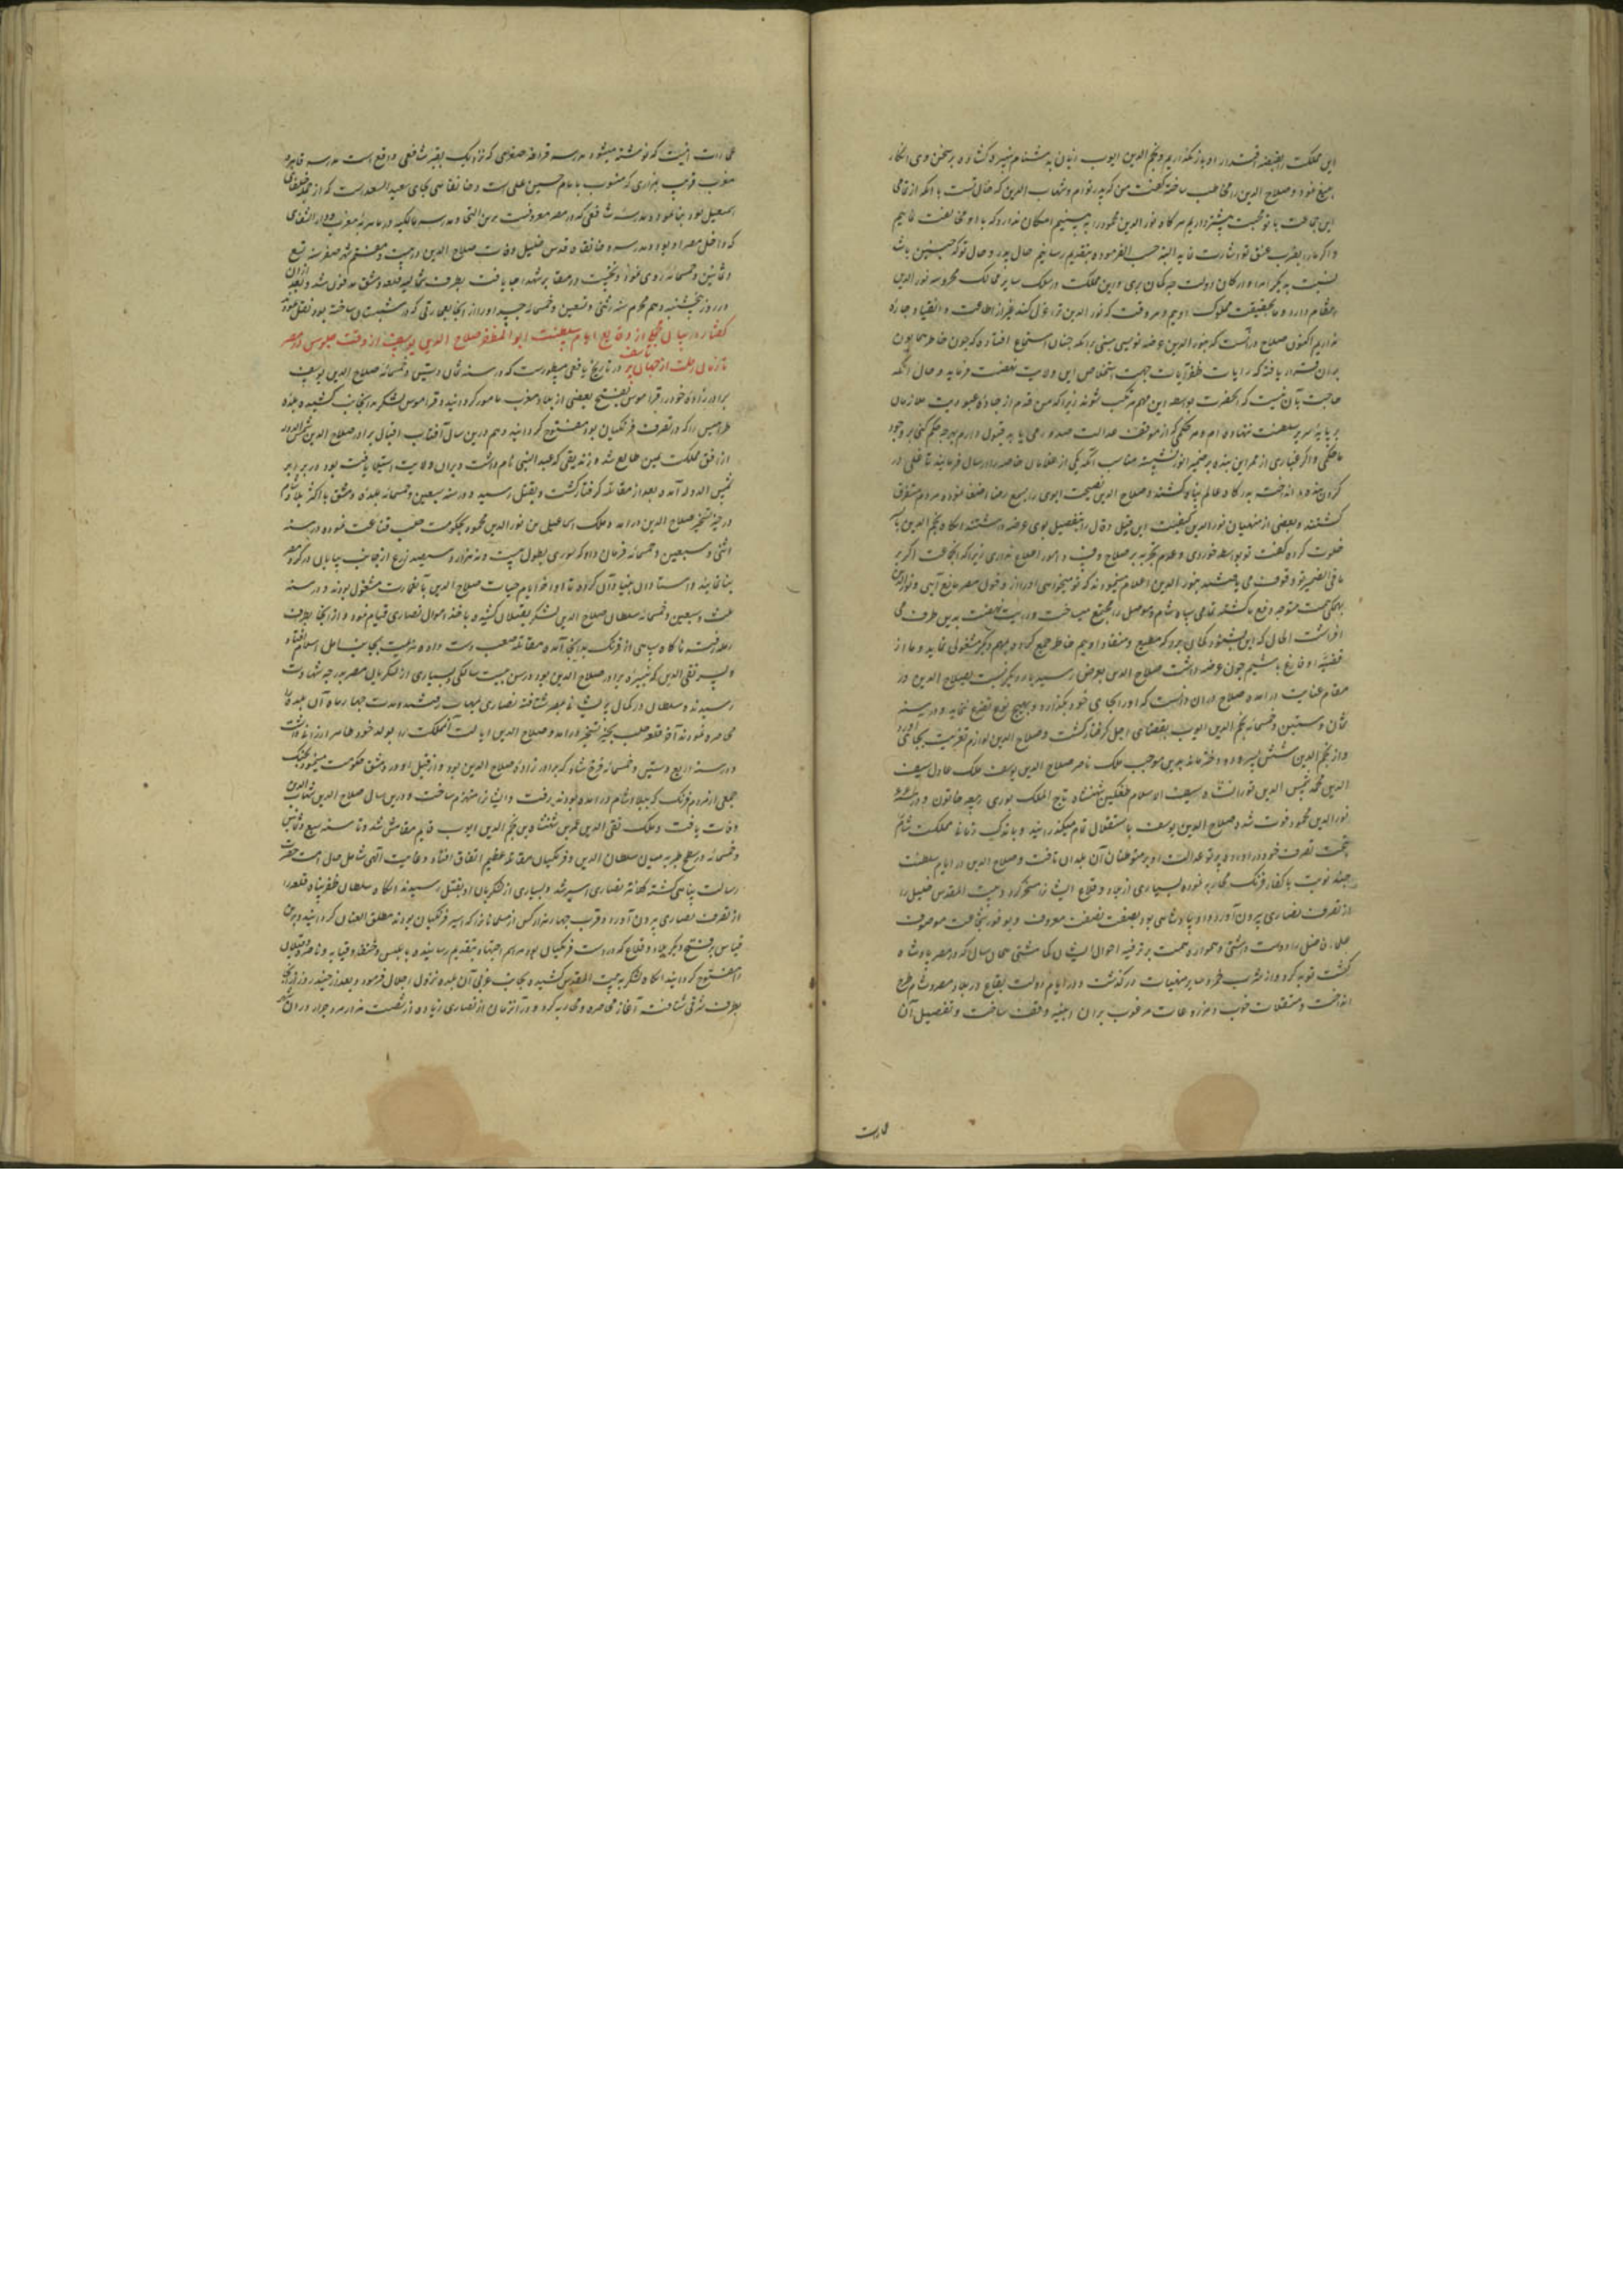 این مملکت را بقبضه اقتدار او باز نگذاریم و نجم الدین ایوب زبان به دشنام نبیره گشاده بر سخن وی انکار
بلیغ نمود و صلاح الدین را مخاطب ساخته گفت من که پدر توام و شهاب الدین که خال تست با آنکه از تمامی
این جماعت با تو محبت بیشتر داریم هرگاه نور الدین محمود را به بینیم امکان ندارد که با او مخالفت نماییم
و اگر ما را بضرب عنق تو اشارت نماید البته حسب الفرموده بتقدیم رسانیم حال پدر و خال تو که چنین باشد
نسبت به دیگر امرا و ارکان دولت چه گمان بری و این مملکت در سلک سایر ممالک محروسه نور الدین
انتظام دارد و ما بحقیقت مملوک اوییم و هر وقت که نور الدین ترا عزل کند غیر از اطاعت و انقیاد چاره
نداریم اکنون صلاح در آنست که بنور الدین عرضه نویسی مبنی بر آنکه چنان استماع افتاده که چون خاطر همایون
بر آن قرار یافته که رایات ظفر آیات جهت استخلاص این ولایت نهضت فرماید و حال آنکه
حاجت بآن نیست که آنحضرت بواسطه این مهم مرتکب شوند زیرا که من قدم از جاده عبودیت ملازمان
پایه سریر سلطنت ننهاده ام و هر حکمی که از موقف عدالت صدور می یابد قبول دارم بهرچه حکم کنی بر وجود
ما حکمی و اگر غباری از ممر این بنده بر ضمیر انور نشسته مناسب آنکه یکی از غلامان خاصه را ارسال فرمایند تا غلی در
گردن بنده انداخته به درگاه عالم پناه کشند و صلاح الدین نصیحت ابوی را بسمع رضا اصغا نموده مردم متفرق
گشتند و بعضی از منهیان نور الدین کیفیت این قیل و قال را بتفصیل بوی عرضه داشتند آنگاه نجم الدین با پسر
خلوت کرده گفت تو بواسطه خوردی و عدم تجربه بر صلاح وقت و امور اطلاع نداری زیرا که آنجماعت اگر بر
ما فی الضمیر تو وقوف می یافتند بنور الدین اعلام مینمودند که تو میخواهی او را از دخول مصر مانع آیی و نور الدین
بهمگی همت متوجه دفع ما گشته تمامی سپاه شام و موصل را مجتمع میساخت و رایت نهضت بدین طرف می
افراشت الحال که این بشنود گمان برد که مطیع و منقاد اوییم خاطر جمع کرده بمهم دیگر مشغولی نماید و ما از
قضیه او فارغ باشیم چون عرضه داشت صلاح الدین بعرض رسید بار دیگر نسبت بصلاح الدین در
مقام عنایت در آمده صلاح در آن دانست که او را بجای خود بگذارد و بهیچ نوع تعرض ننماید و در سنه
ثمان و ستین و خمسمائه نجم الدین ایوب بمقتضای اجل گرفتار گشت و صلاح الدین لوازم تعزیت بجای آورد
و از نجم الدین شش پسر و دو دختر ماند بدین موجب ملک ناصر صلاح الدین یوسف ملک عادل سیف
الدین محمد شمس الدین توران شاه سیف الاسلام طغتکین شهنشاه تاج الملک بوری ربیعه خاتون و در
نور الدین محمود فوت شد و صلاح الدین یوسف باستقلال تمام میگذرانید و باندک زمانی مملکت شام
تحت تصرف خود در آورده پرتو عدالت او بر متوطنان آن بلدان تافت و صلاح الدین در ایام سلطنت
چند نوبت با کفار فرنگ محاربه نموده بسیاری از بلاد و قلاع ایشان را مسخر کرد و بیت المقدس خلیل را
از تصرف نصاری بیرون آورد و او پادشاهی بود بصفت نصفت معروف و بوفور شجاعت موصوف
علما و فاضل را دوست داشتی و همواره همت بر ترفیه احوال ایشان گماشتی همان سال که در مصر پادشاه
گشت توبه کرد و از شرب خمر و سایر منهیات در گذشت و در ایام دولت بقاع در بلاد مصر و شام طرح
انداخت و مستغلات خوب و مزروعات مرغوب بر آن ابنیه وقف ساخت و تفصیل آن
عمارت
عمارات اینست که نوشته میشود مدرسه قرافه صغری که نزدیک بقبر شافعی واقع است مدرسه قاهره
مغرب قریب بمزاری که منسوب بامام حسین علی است و خانقاهی بجای سعید السعدا است که از خلفای
اسمعیل بود بنا نموده مدرسه شافعی که در مصر معروفست بزین التجار و مدرسه مالکیه در مغرب دار الشفای
که داخل مصر او بود و مدرسه و خانقاه قدس خلیل وفات صلاح الدین در بیست و هفتم شهر صفر سنه تسع
و ثمانین و خمسمائه روی نمود و نخست در مقابر شهدا جا یافت بطرف شمالیه قلعه دمشق مدفون شد و بعد از آن
در روز پنجشنبه دهم محرم سنه اثنی و تسعین و خمسمائه جسد او را از آنجا بعمارتی که در شبستان ساخته بود نقل نمود
گفتار در بیان مجملی از وقایع ایام سلطنت ابو المظفر صلاح الدین یوسف از وقت جلوس در مصر
تا زمان رحلت از جهان پر تاسف در تاریخ یافعی مسطور است که در سنه ثمان و ستین و خمسمائه صلاح الدین یوسف
برادرزاده خود را قراقوش بفتح بعضی از بلاد مغرب مامور گردانید و قراقوش لشکر بدانجانب کشیده بلده
طرابلس را که در تصرف فرنگیان بود مفتوح گردانید و هم درین سال آفتاب اقبال برادر صلاح الدین شمس الدوله
از افق مملکت یمن طالع شد و زندیقی که عبد النبی نام داشت و بران ولایت استیلا یافته بود در برابر
شمس الدوله آمده بعد از مقاتله گرفتار گشت و بقتل رسید و در سنه سبعین و خمسمائه بلده دمشق با اکثر بلاد شام
در حیز تسخیر صلاح الدین در آمد و ملک اسماعیل بن نور الدین محمود بحکومت حلب قناعت نموده در سنه
اثنی و سبعین و خمسمائه فرمان داد که سوری بطول بیست و نه هزار و سیصد زرع از جانب بیابان در گرد مصر
بنا نمایند و استادان بنیاد آن کرده تا اواخر ایام حیات صلاح الدین بآن عمارت مشغول بودند و در سنه
ثلث و سبعین و خمسمائه سلطان صلاح الدین لشکر بعسقلان کشیده باخذ اموال نصاری قیام نمود و از آنجا بطرف
رمله رفت ناگاه سپاهی از فرنگ بدانجا آمده مقاتله صعب دست داده هزیمت بجانب اهل اسلام افتاد
و پسر تقی الدین که نبیره برادر صلاح الدین بود در سن بیست سالگی و بسیاری از لشکریان مصر بدرجه شهادت
رسیدند و سلطان در کمال پریشانی بمصر شتافته نصاری بحماه رفتند و مدت چهار ماه آن بلده را
محاصره نمودند آخر قلعه حلب بحیز تسخیر در آمد و صلاح الدین ایالت آنمملکت را بولد خود ظاهر ارزانی داشت
و در سنه اربع و ستین و خمسمائه فرخ شاه که برادرزاده صلاح الدین بود و از قبل او در دمشق حکومت مینمود بجنگ
جمعی از مردم فرنگ که ببلاد شام در آمده بودند رفت و ایشان را منهزم ساخت و درین سال صلاح الدین شهاب الدین
وفات یافت و ملک تقی الدین عمر بن شهنشاه بن نجم الدین ایوب قایم مقامش شد و تا سنه سبع و ثمانین
و خمسمائه در سطح طبریه میان سلطان الدین و فرنگیان مقاتله عظیم اتفاق افتاد و عنایت الهی شامل حال امت حضرت
رسالت پناهی گشته کماته نصاری اسیر شد و بسیاری از لشکریان او بقتل رسیدند آنگاه سلطان ظفر پناه قلعه را
از تصرف نصاری بیرون آورد و قریب چهار هزار کس از مسلمانان را که اسیر فرنگیان بودند مطلق العنان گردانید و برین
قیاس بر فتح دیگر بلاد و قلاع که در دست فرنگیان بود مراسم اجتهاد بتقدیم رسانیده نابلس و حیفا و قیساریه و ناصره و عسقلان
را مفتوح گردانید آنگاه لشکر به بیت المقدس کشیده بجانب غربی آن بلده نزول اجلال فرمود و بعد از چند روز از آنجا
بطرف شرقی شتافت آغاز محاصره و محاربه کرد و در آن زمان از نصاری زیاده از شصت هزار مرد جرار در آن شهر